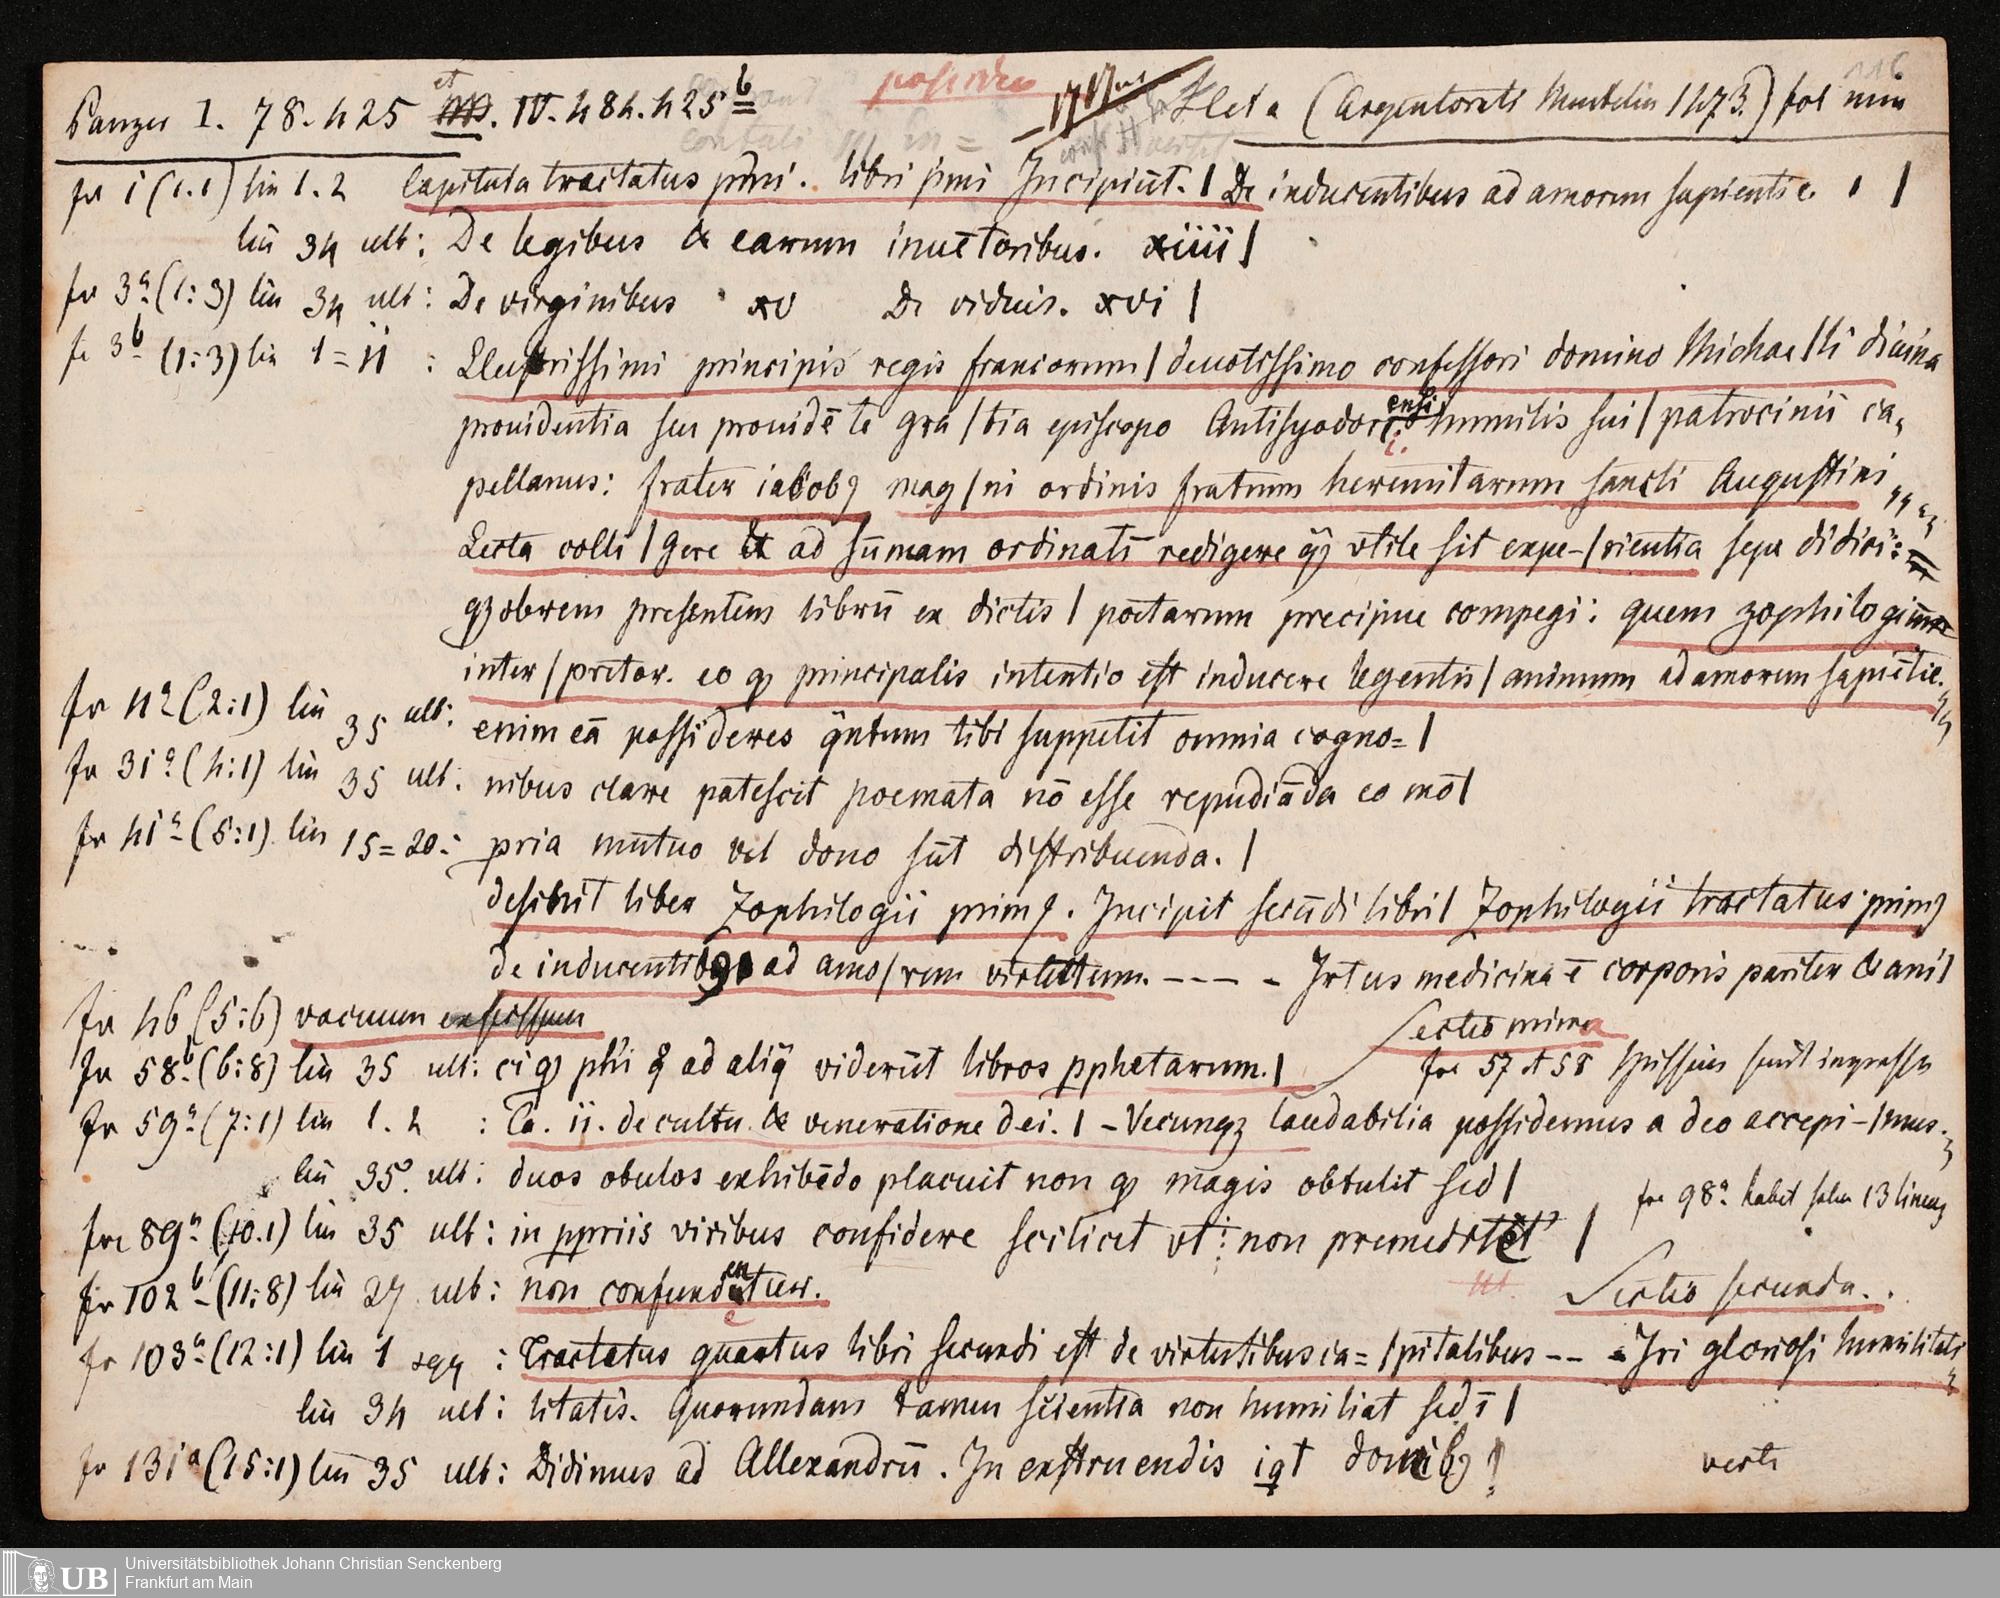 Panzer I. 78. 425 et IV. 484. 425 b
(Argentorati Mentelin 1473.) fol min
fr 1 (1.1) lin 1. 2 Capitula tractatus p̄mi. libri p̄mi Incipiūt. | De inducentibus ad amorem sapientie. 1 |
lin 34 ult: De legibus & earum inuētoribus. xiiii |
fr 3a (1:3) lin 34 ult: De virginibus xv De viduis. xvi |
fr 3b (1:3) lin 1=11 : Illustrissimi principis regis francorum | deuotissimo confessori domino Michae | li diuina
prouidentia seu prouidēte gra | tia episcopo Antisyodorensi humilis sui | patrocinii ca,
pellanus: frater iacobꝰ mag | ni ordinis fratrum heremitarum sancti Augustini
Lecta colli | gere & ad sūmam ordinatī redigere qꝫ vtile sit expe- | rientia sepe didici:
qꝫobrem presentem librū ex dictis | poetarum precipue compegi: quem zophilogium
inter | pretor. eo ꝙ principalis intentio est inducere legentis | animum ad amorem sapiētie.
fr 11a (2:1) lin 35 ult: enim eā possideres q̄ntum tibi suppetit omnia cogno= |
fr 31a (4:1) lin 35 ult: nibus clare patescit poemata nō esse repudiāda eo mō |
fr 41a (5:1) lin 15=20: pria mutuo vel dono sūt distribuenda. |
desinit liber Zophilogii primꝰ. Incipit secūdi libri | Zophilogii tractatus primꝰ
de inducentibꝰ ad amo | rem virtutum. - - - - Irtus medicina ē corporis pariter & ani |
fr 46 (5:6) vacuum
Sectio prima
fr 58b (6:8) lin 35 ult: ci ꝙ phi & ad aliq̄ viderūt libros pphetarum. |
fr 57 et 58
fr 59a (7:1) lin 1. 2 : Ca. ii. de cultu & veneratione dei. | - Vecunqꝫ laudabilia possidemus a deo accepi- | mus.
lin 35. ult: duos obulos exhibēdo placuit non ꝙ magis obtulit sed |
fr 98a habet solum 13 lineas
fr 89a (10.1) lin 35 ult: in ppriis viribus confidere scilicet vt: non premeditet' |
fr 102b (11:8) lin 27 ult: non confundentur.
Sectio secunda.
fr 103a (12:1) lin 1 sqq : Tractatus quartus libri secundi est de virtutibus ca= | pitalibus - - - Iri gloriosi humilitati
lin 34 ult: litatis. Quorundam tamen scientia non humiliat sed ī |
fr 131a (15:1) lin 35 ult: Didimus ad Allexandrū. In exstruendis igt domibꝰ |
verte
Universitätsbibliothek Johann Christian Senckenberg
Frankfurt am Main
UB